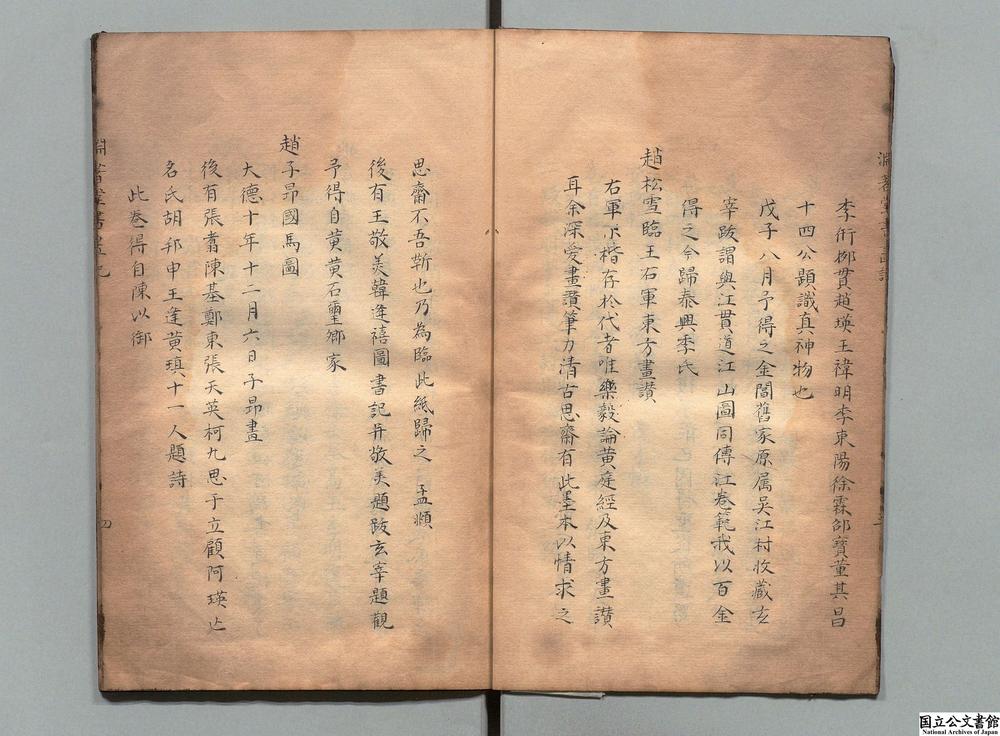 李衎柳貫趙瑛王褘明李東陽徐霖邵寶董其昌
十四公題識真神物也
戊子八月予得之金閶舊家原属吳江村收藏玄
宰跋謂與江貫道江山圖同傳江卷範我以百金
得之今歸泰興季氏
趙松雪臨王右軍東方畫讃
右軍小楷存於代者唯樂毅論黄庭經及東方畫讃
耳余深愛畫讃筆力清古思齋有此墨本以情求之
思齋不吾靳也乃為臨此紙歸之孟頫
後有王敬美韓逢禧圖書記并敬美題跋玄宰題觀
予得自黄黄石璽卿家
趙子昂國馬圖
大德十年十二月六日子昂畫
後有張翥陳基鄭東張天英柯九思于立顧阿瑛
名氏胡邦申王逢黄瑱十一人題詩
此卷得自陳以御
四
国立公文書館
National Archives of Japan